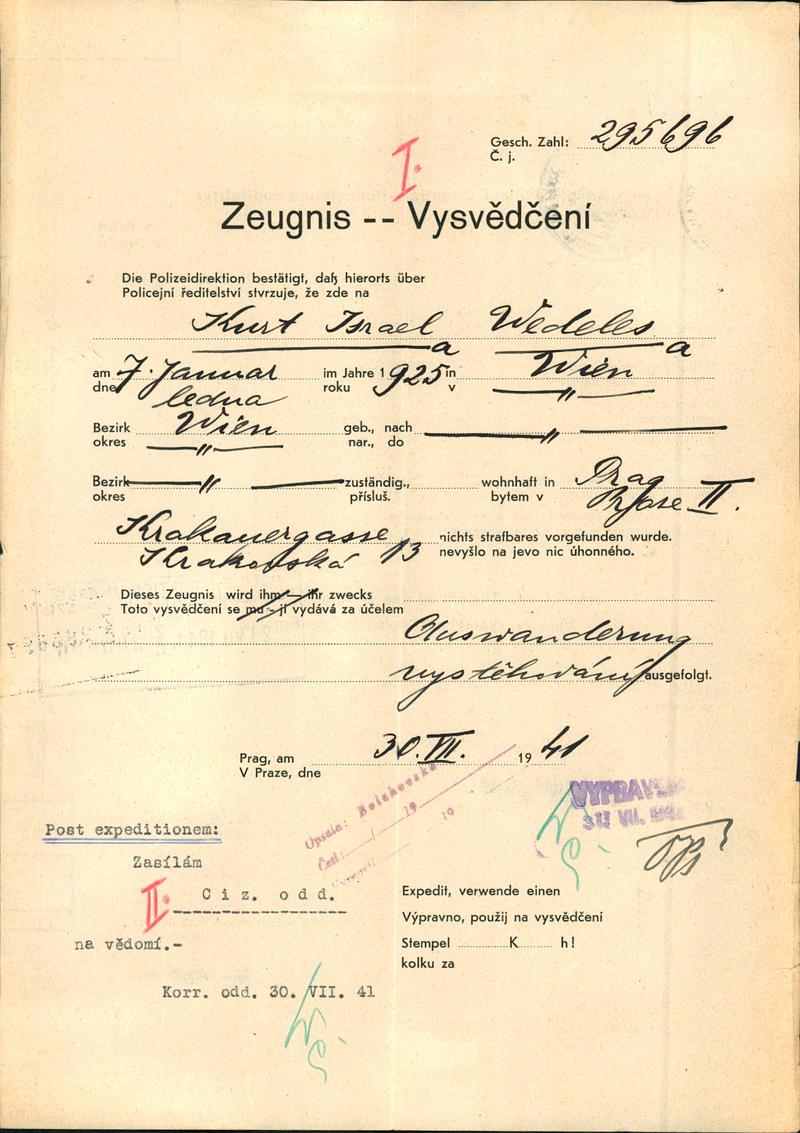 Gesch. Zahl: 295696
Č. j.
I.
Zeugnis -- Vysvědčení
Die Polizeidirektion bestätigt, daß hierorts über
Policejní ředitelství stvrzuje, že zde na
Kurt Israel Wedeles
a a
am 7. Januar im Jahre 1925 in Wien
dne ledna roku v "
Bezirk Wien geb., nach "
okres " nar., do
Bezirk " zuständig., wohnhaft in Prag
okres přísluš. bytem v Praze II.
Krakauergasse 13 nichts strafbares vorgefunden wurde.
Krakovská nevyšlo na jevo nic úhonného.
Dieses Zeugnis wird ihm – ihr zwecks
Toto vysvědčení se mu - jí vydává za účelem
Auswanderung
vystěhování ausgefolgt.
Prag, am 30. VII. 19 41
V Praze, dne
Upsala: Bolehovská
Četl: 19
19
VYPRAVENO
30 VII. 1941
Post expeditionem:
Zasílám
II. Ciz. odd.
na vědomí.-
Korr. odd. 30. VII. 41
Expedit, verwende einen
Výpravno, použij na vysvědčení
Stempel K h!
kolku za